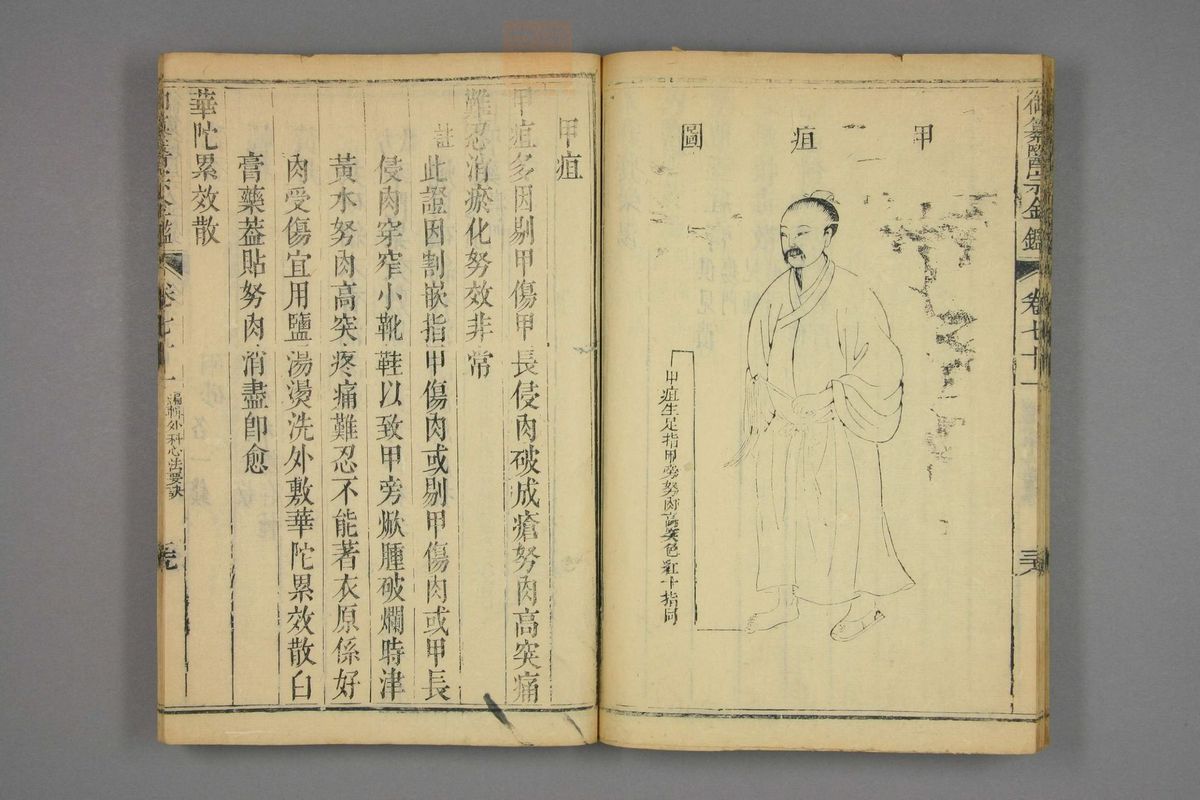 御纂醫宗金鑑
卷七十一
甲疽圖
甲疽生足指甲旁努肉高突色紅十指同
甲疽
甲疽多因剔甲傷甲長侵肉破成瘡努肉高突痛
難忍消瘀化努效非常
註此證因割嵌指甲傷肉或剔甲傷肉或甲長
侵肉穿窄小靴鞋以致甲旁焮腫破爛時津
黃水努肉高突疼痛難忍不能著衣原係好
肉受傷宜用鹽湯燙洗外敷華陀累效散白
膏藥蓋貼努肉消盡卽愈
華陀累效散
編輯外科心法要訣